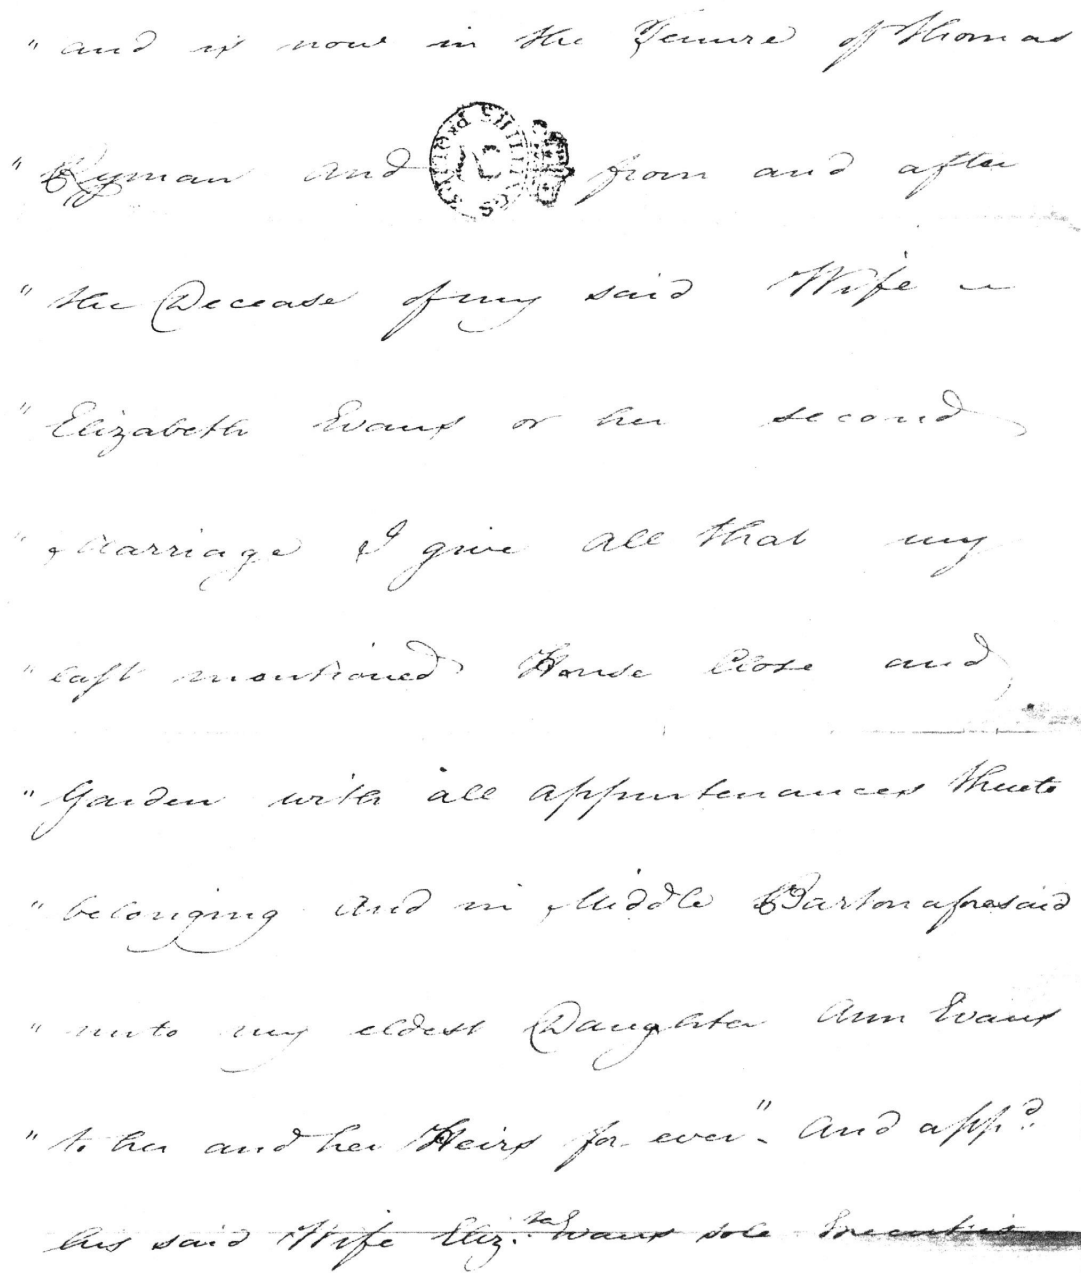 " and is now in the Tenure of Thomas
" Kyman and from and after
" the Decease of my said Wife
" Elizabeth Evans or her second
" Marriage I give all that my
" last mentioned House Close and
" Garden with all appurtenances thereto
" belonging And in Middle Barton aforesaid
" unto my eldest Daughter Ann Evans
" to her and her Heirs for ever " And appd.
his said Wife Eliz.th Evans sole Executrix